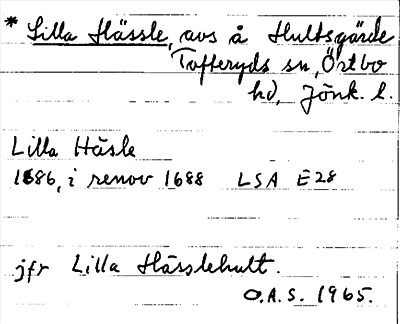 * Lilla Hässle, avs å Hultsgärde
Tofteryds sn, Östbo
hd, Jönk. l.
Lilla Häsle
1686, i renov 1688 LSA E28
jfr Lilla Hässlehult.
O.A.S. 1965.